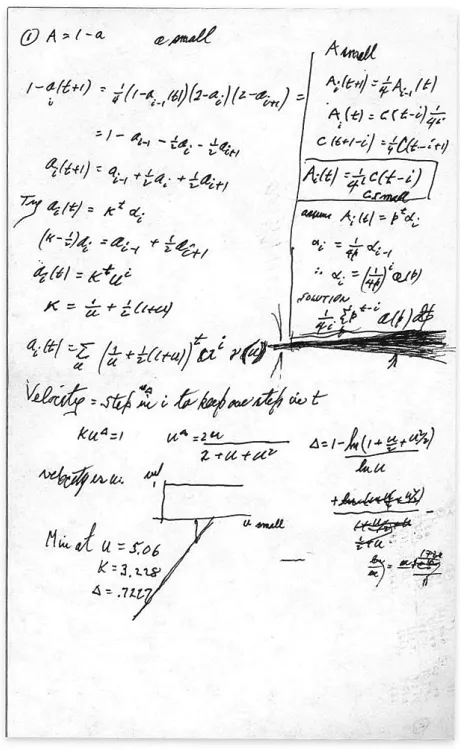 ① A = 1-a    a small
1-a_i(t+1) = 1/4 (1-a_{i-1}(t))(2-a_i)(2-a_{i+1}) =
= 1 - a_{i-1} - 1/2 a_i - 1/2 a_{i+1}
a_i(t+1) = a_{i-1} + 1/2 a_i + 1/2 a_{i+1}
Try a_i(t) = K^t α_i
(K-1/2)a_i = a_{i-1} + 1/2 a_{i+1}
a_i(t) = K^t u^i
K = 1/u + 1/2(1+u)
a_i(t) = Σ_u (1/u + 1/2(1+u))^t u^i
A small
A_i(t+1) = 1/4 A_{i-1}(t)
A_i(t) = C(t-i) 1/4^i
C(t+1-i) = 1/4 C(t-i+1)
A_i(t) = 1/4^i C(t-i)
C small
assume A_i(t) = p^t α_i
α_i = 1/4p α_{i-1}
∴ α_i = (1/4p)^i a(p)
SOLUTION
1/4^i Σ p^{t-i} a(p) dp
Velocity = step Δ in i to keep one step in t
K u^Δ = 1    u^Δ = 2u / 2+u+u²    Δ = 1 - ln(1 + u/2 + u²/2) / ln u
velocity vs u.    vel
1
u small
Min at u = 5.06
K = 3.228
Δ = .7227